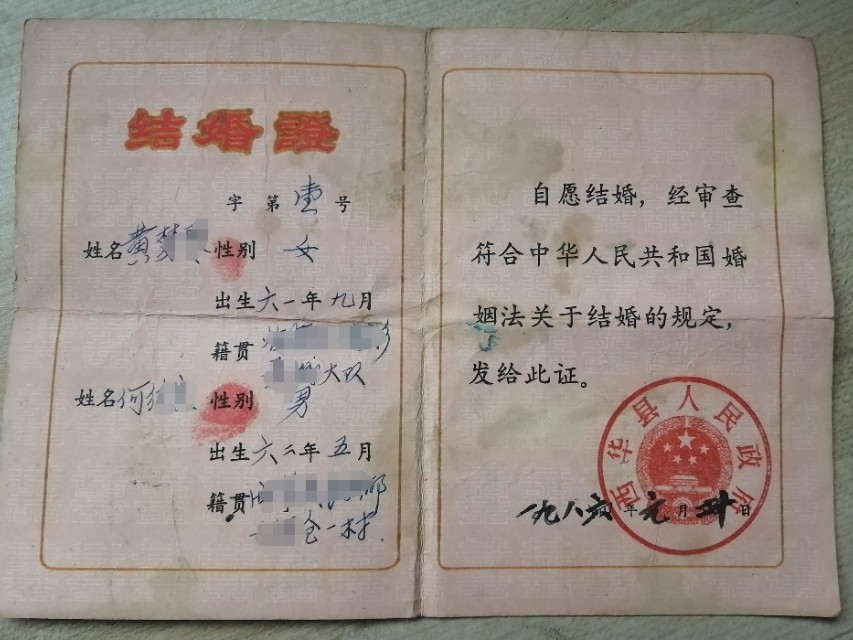 结婚證
字第壹号
姓名黄 性别 女
出生六一年九月
籍贯
大队
姓名何 性别 男
出生六二年五月
籍贯
一村.
自愿结婚，经审查
符合中华人民共和国婚
姻法关于结婚的规定，
发给此证。
西华县人民政府
一九八六年元月 日